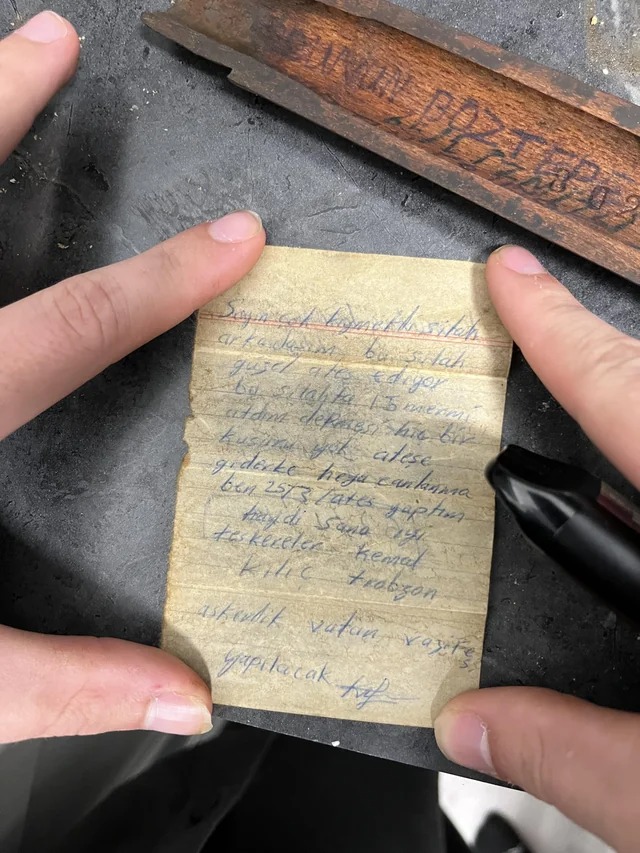 BOZTEPE
Sayın çok kıymetli silah
arkadaşım bu silah
güzel ateş ediyor
bu silahta 15 mermi
attım dekmesi hiç bir
kusuru yok ateşe
giderke heycanlanma
ben 25/3 ateş yaptım
haydi sana iyi
teskereler kemal
kılıç trabzon
askerlik vatan vazifesi
yapılıcak